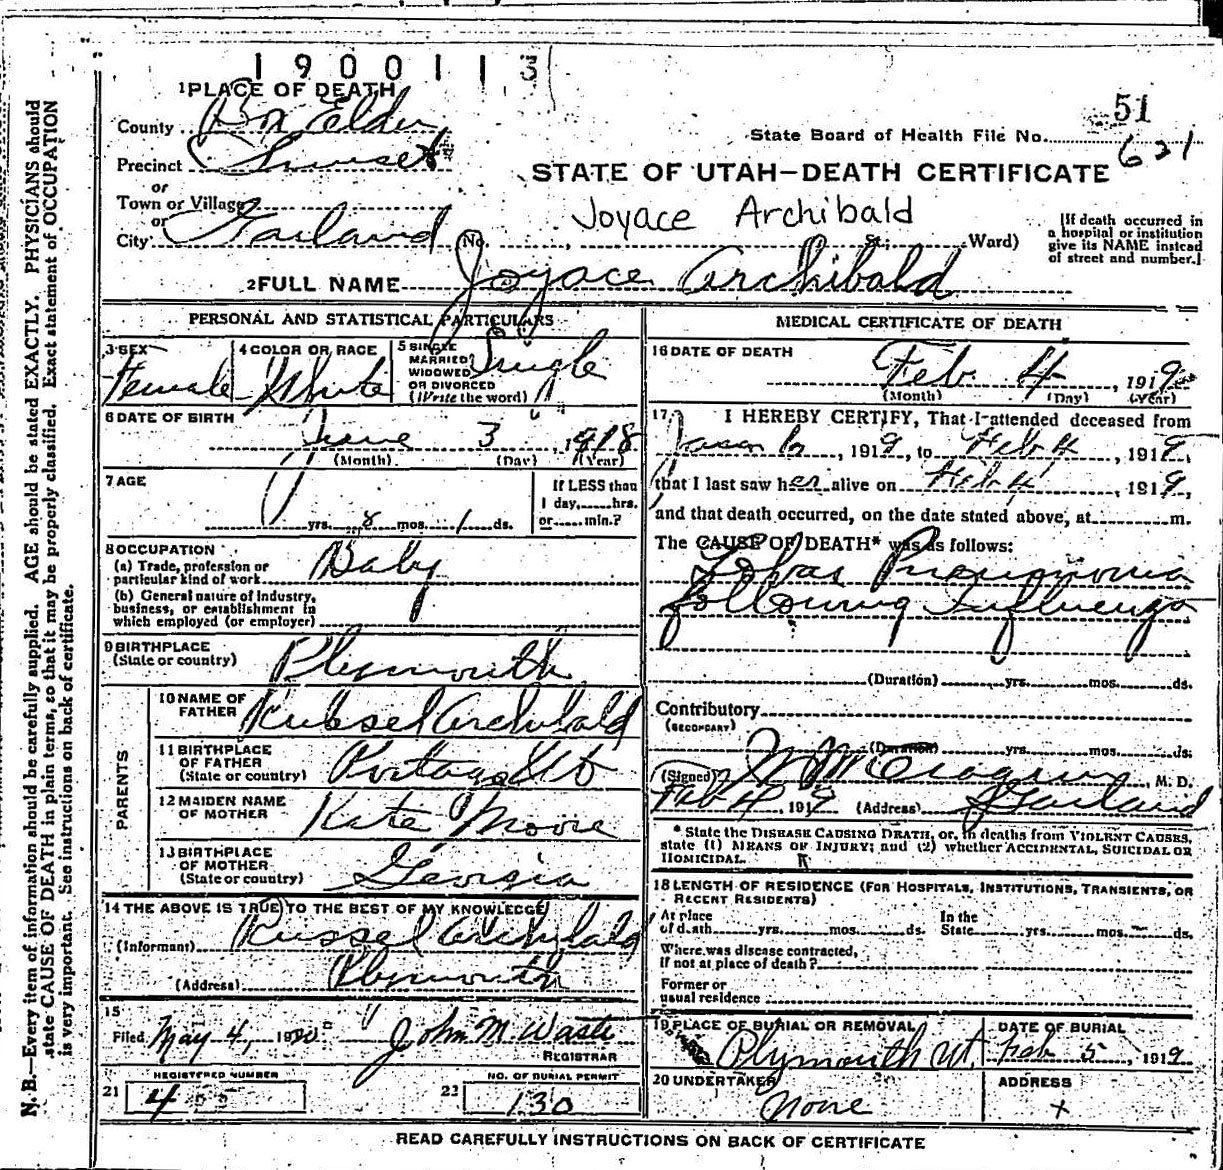 1900113
1 PLACE OF DEATH
County Box Elder
51
State Board of Health File No. 621
Precinct Sunset
STATE OF UTAH—DEATH CERTIFICATE
or
Town or Village
Joyace Archibald
or
City Garland No. St.; Ward)
[If death occurred in
a hospital or institution
give its NAME instead
of street and number.]
2 FULL NAME Joyace Archibald
PERSONAL AND STATISTICAL PARTICULARS
3 SEX
Female
4 COLOR OR RACE
White
5 SINGLE
MARRIED
WIDOWED
OR DIVORCED
(Write the word)
Single
6 DATE OF BIRTH
June 3, 1918
(Month) (Day) (Year)
7 AGE
yrs. 8 mos. 1 ds.
If LESS than
1 day,......hrs.
or......min.?
8 OCCUPATION
(a) Trade, profession or
particular kind of work
Baby
(b) General nature of industry,
business, or establishment in
which employed (or employer)
9 BIRTHPLACE
(State or country)
Plymouth
PARENTS
10 NAME OF
FATHER
Russel Archibald
11 BIRTHPLACE
OF FATHER
(State or country)
Portage Ut
12 MAIDEN NAME
OF MOTHER
Kate Moore
13 BIRTHPLACE
OF MOTHER
(State or country)
Georgia
14 THE ABOVE IS TRUE TO THE BEST OF MY KNOWLEDGE
(Informant) Russel Archibald
(Address) Plymouth
15
Filed May 4, 1920 John M. Waste
REGISTRAR
REGISTERED NUMBER
21 4
NO. OF BURIAL PERMIT
22 130
MEDICAL CERTIFICATE OF DEATH
16 DATE OF DEATH
Feb 4, 1919
(Month) (Day) (Year)
17 I HEREBY CERTIFY, That I attended deceased from
, 1919, to Feb 4, 1919,
that I last saw her alive on Feb 4, 1919,
and that death occurred, on the date stated above, at m.
The CAUSE OF DEATH* was as follows:
Lobar Pneumonia
following Influenza
(Duration) yrs. mos. ds.
Contributory
(SECONDARY)
(Duration) yrs. mos. ds.
(Signed) M. D.
Feb 4, 1919 (Address) Garland
* State the DISEASE CAUSING DEATH, or, in deaths from VIOLENT CAUSES,
state (1) MEANS OF INJURY; and (2) whether ACCIDENTAL, SUICIDAL OR
HOMICIDAL.
18 LENGTH OF RESIDENCE (FOR HOSPITALS, INSTITUTIONS, TRANSIENTS, OR
RECENT RESIDENTS)
At place
of death yrs. mos. ds.
In the
State yrs. mos. ds.
Where was disease contracted,
If not at place of death?
Former or
usual residence
19 PLACE OF BURIAL OR REMOVAL
Plymouth Ut.
DATE OF BURIAL
Feb 5, 1919
20 UNDERTAKER
None
ADDRESS
READ CAREFULLY INSTRUCTIONS ON BACK OF CERTIFICATE
N. B.—Every item of information should be carefully supplied. AGE should be stated EXACTLY. PHYSICIANS should
state CAUSE OF DEATH in plain terms, so that it may be properly classified. Exact statement of OCCUPATION
is very important. See instructions on back of certificate.